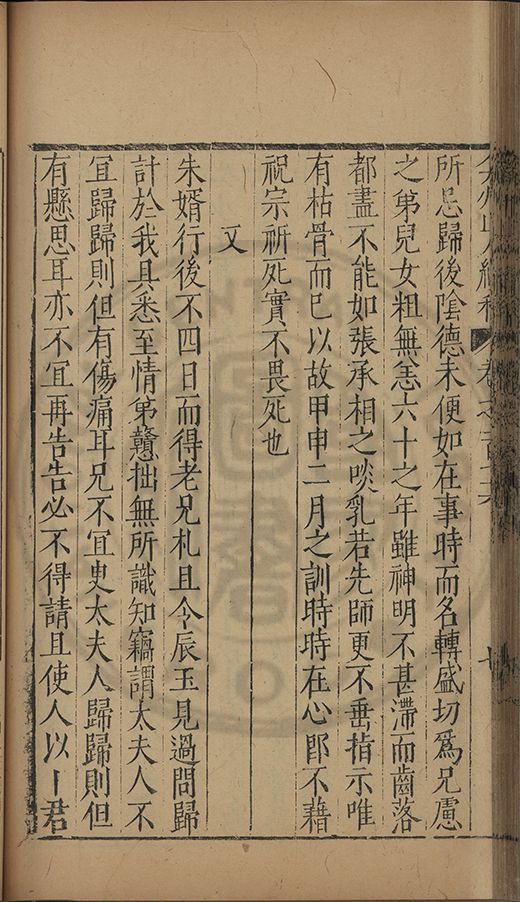 所忌歸後陰德未便如在事時而名轉盛切爲兄慮
之第兒女粗無恙六十之年雖神明不甚滯而齒落
都盡不能如張承相之啖乳若先師更不垂指示唯
有枯骨而已以故甲申二月之訓時時在心卽不藉
祝宗祈死實不畏死也
又
朱婿行後不四日而得老兄札且令辰玉見過問歸
計於我具悉至情第戇拙無所識知竊謂太夫人不
宜歸歸則但有傷痛耳兄不宜史太夫人歸歸則但
有懸思耳亦不宜再告告必不得請且使人以丨君